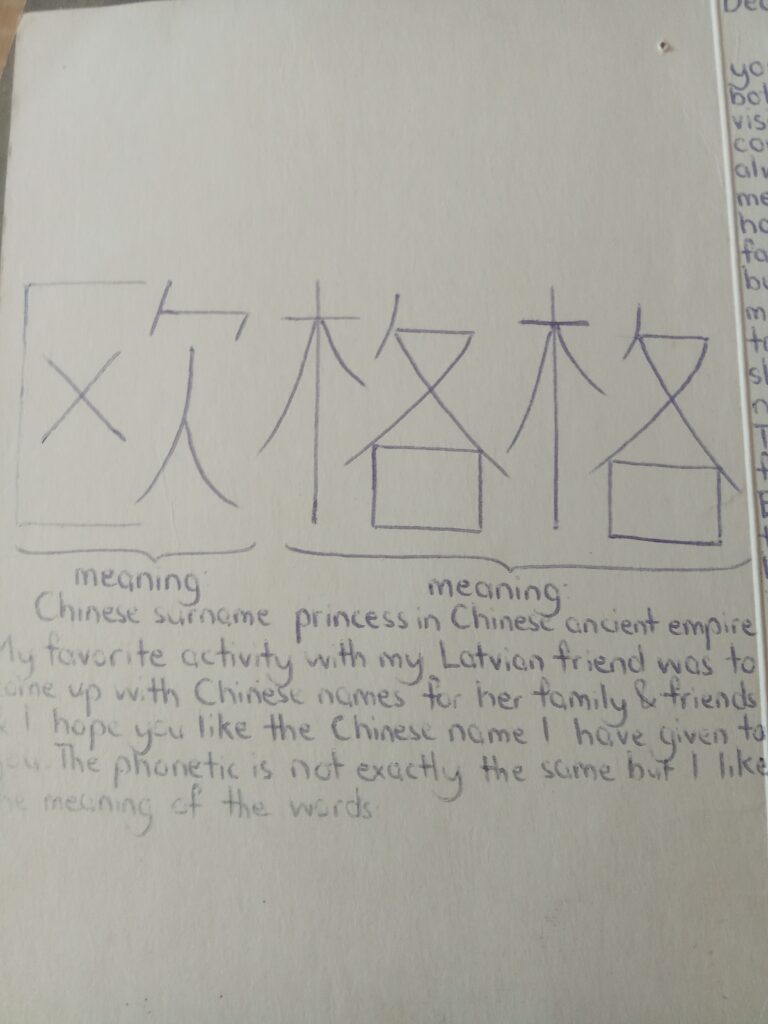 欧格格
meaning: meaning:
Chinese surname princess in Chinese ancient empire
My favorite activity with my Latvian friend was to
come up with Chinese names for her family & friends
& I hope you like the Chinese name I have given to
you. The phonetic is not exactly the same but I like
the meaning of the words